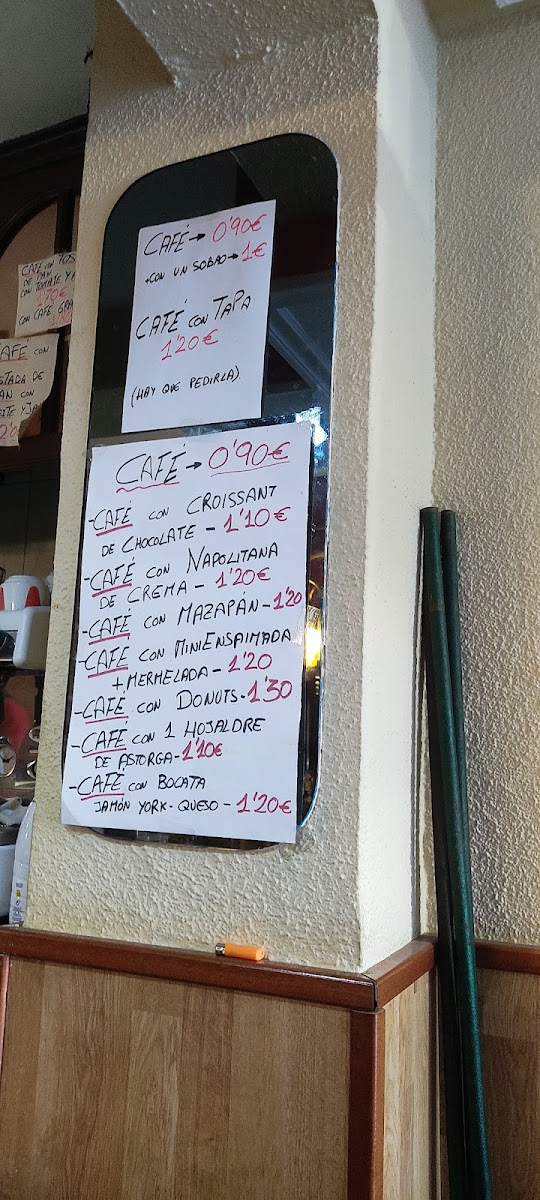 CAFÉ → 0'90€
+CON UN SOBAO → 1€
CAFÉ CON TAPA
1'20€
(HAY QUE PEDIRLA).
CAFÉ → 0'90€
-CAFÉ CON CROISSANT
DE CHOCOLATE - 1'10€
-CAFÉ CON NAPOLITANA
DE CREMA - 1'20€
-CAFÉ CON MAZAPÁN - 1'20
-CAFÉ CON MINIENSAIMADA
+ MERMELADA - 1'20
-CAFÉ CON DONUTS - 1'30
-CAFÉ CON 1 HOJALDRE
DE ASTORGA - 1'10€
-CAFÉ CON BOCATA
JAMÓN YORK - QUESO - 1'20€
CAFÉ
DE PAN
CON TOMATE Y
1'70€
CON CAFÉ
CAFÉ CON